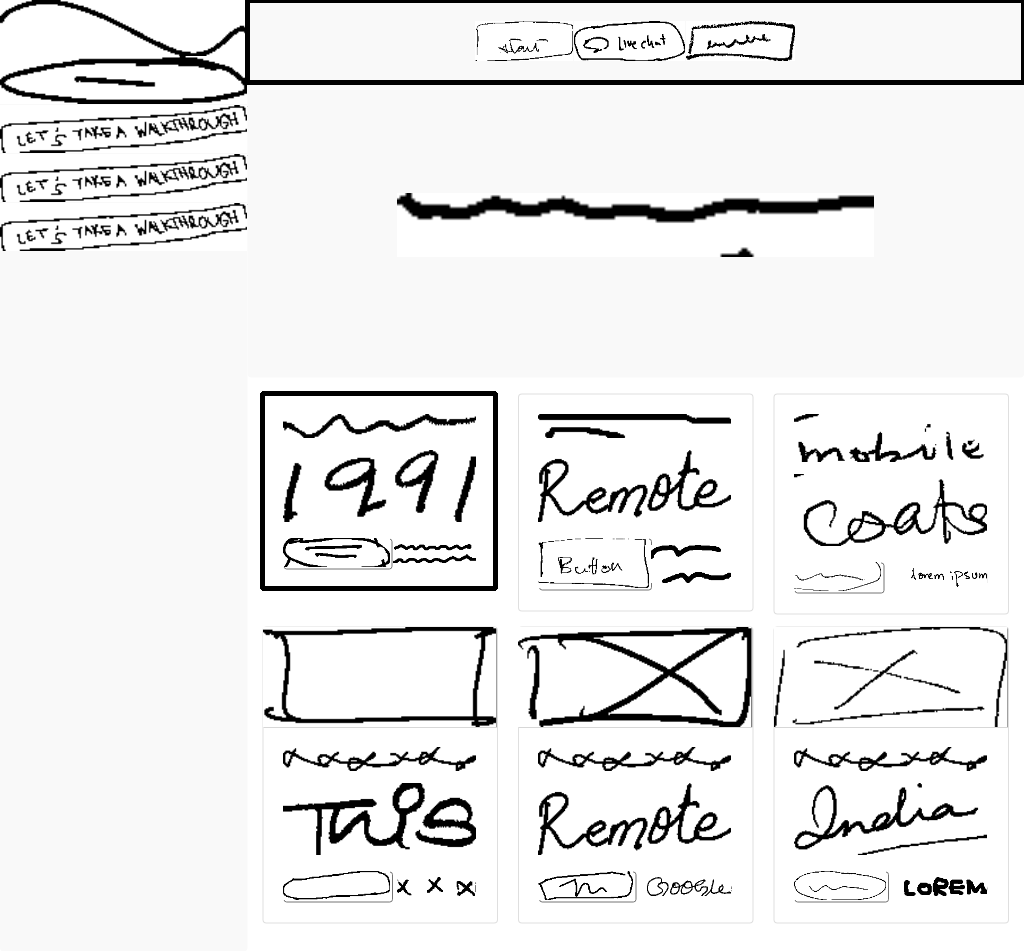 start Live chat
LET'S TAKE A WALKTHROUGH
LET'S TAKE A WALKTHROUGH
LET'S TAKE A WALKTHROUGH
1991
Remote
Button
mobile
Coats
lorem ipsum
This
x x x
Remote
Google
India
LOREM